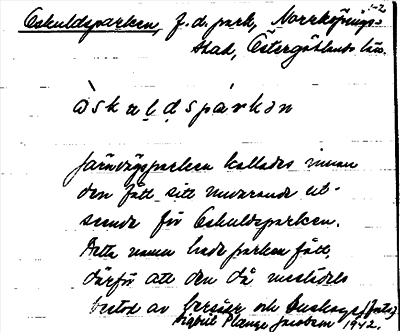 1-2
Oskuldsparken, f.d. park, Norrköpings
stad, Östergötlands län.
òskɯl̥dspárkən
Järnvägsparken kallades innan
den fått sitt nuvarande ut-
seende för Oskuldsparken.
Detta namn hade parken fått,
därför att den då mestadels
bestod av bersǻer och buskage
Sigbrit Plænge Jacobson 1942.